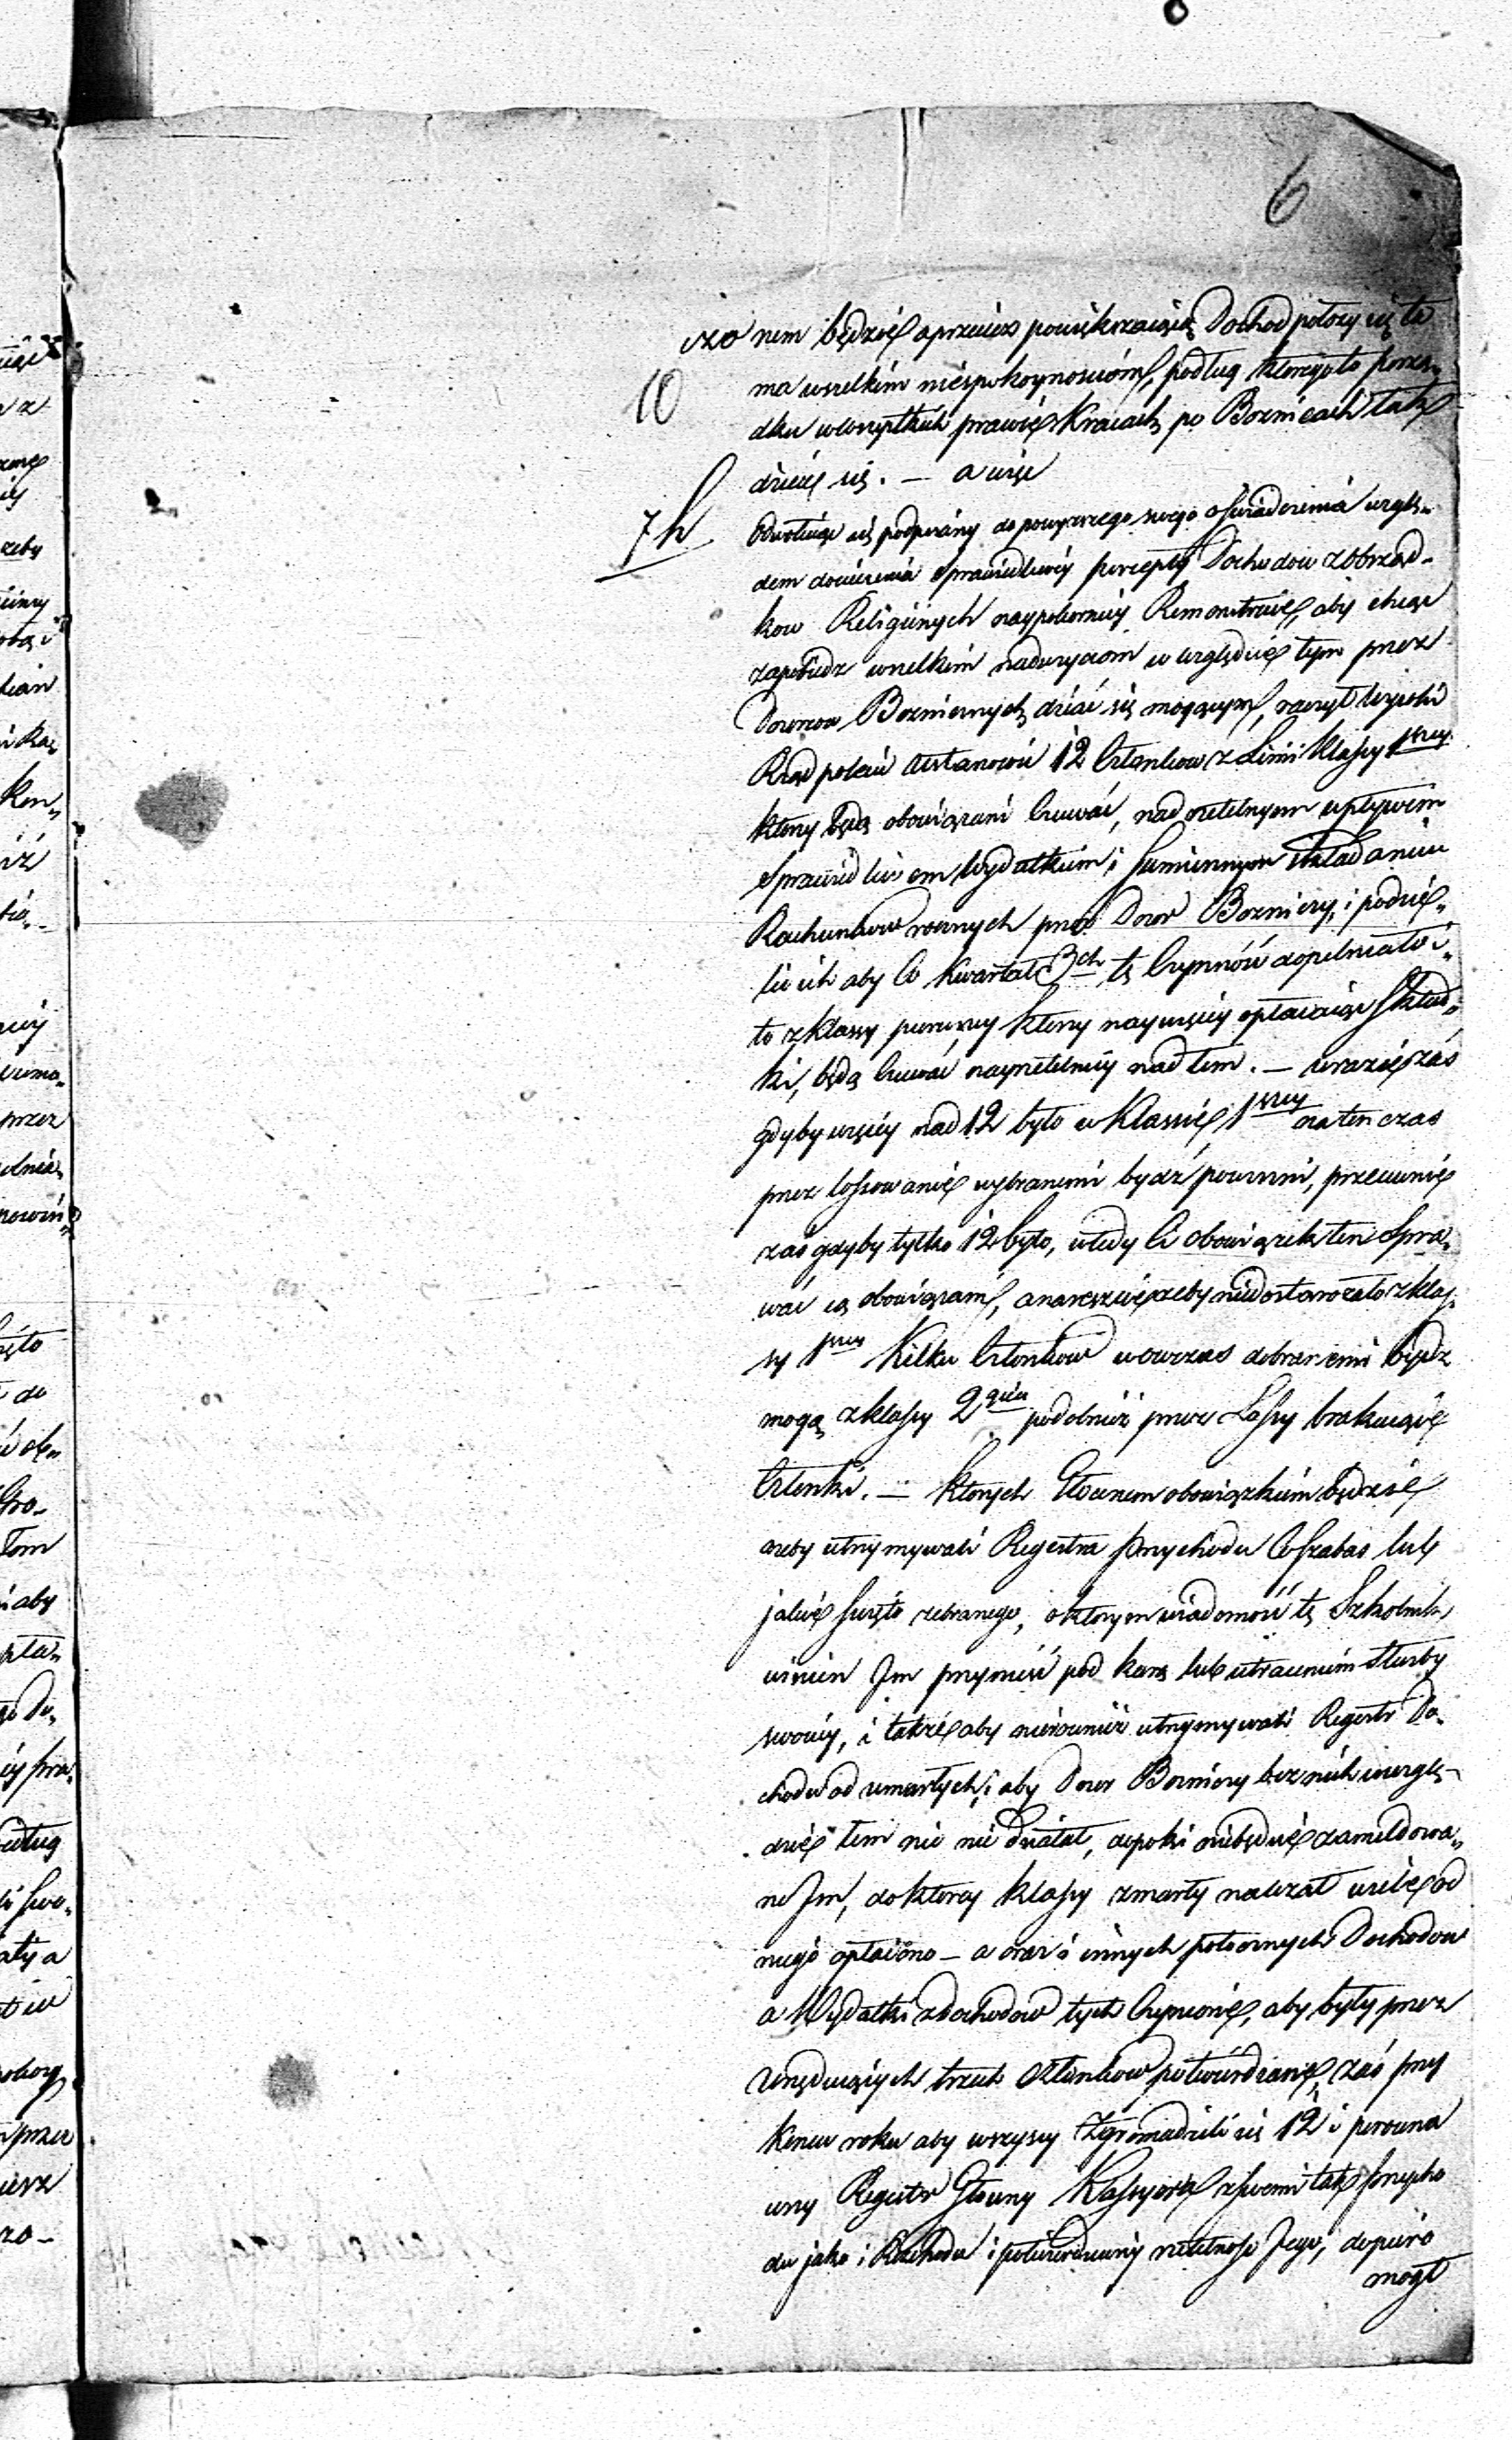 6
czo nem będzie a przeciez powiększaiąc Dochod położy się ta
10
ma wszelkim niespokoynościom, podług ktorego to porzą„
dku wewszystkich prawie Kraiach po Boznicach tak
dzieie się. — a więc
7h
Odwołuiąc się podpisany do powyzszego swego oswiadczenia wzglę„
dem docieczenia sprawiedliwey percepty Dochodow z obrząd„
kow Religiinych naypokorniey Remonstruie, aby chcąc
zapobiedz wszelkim nadużyciom w względzie tym przez
Dozorcow Bozniczych dziać się mogącym, raczył Wysoki
Rząd polecić ustanowić 12 Członkow z Linii Klassy 1szey
ktorzy będą obowiązani Czuwać, nad rzetelnym wpływem
Sprawiedliwem Wydatkiem i Sumiennym składaniem
Rachunkow rocznych przez Dozor Bozniczy, i podzie„
lić ich aby Co Kwartał 3ch tę Czynność dopełniało i„
to z klassy pierwszey ktorzy naywięcey opłacaiąc Skład„
ki, będą Czuwać nayrzetelniey nad tem. — wrazie zaś
gdyby więcey nad 12 było w Klassie 1szey natenczas
przez lossowanie wybranemi bydź powinni, przeciwnie
zaś gdyby tylko 12 było, wtedy Ci obowiązek ten Spra„
wać są obowiązani, a nareszcie zeby niedostarczało z klas„
sy 1szey Kilku Członkow wowczas dobranemi bydz
mogą z klassy 2giey podobnież przez Lossy brakuiące
Członki. — Ktorych Głownem obowiązkiem będzie
azeby utrzymywali Regestra Przychodu Co Szabas lub
jakie Swięto zebranego, o ktorym wiadomość tę Szkolnik
winien Jm przynieść pod karą lub utraceniem Służby
swoiey, i także aby nierownież utrzymywali Regestr Do„
chodu od umarłych, i aby Dozor Bozniczy bez nich wwzglę„
dzie tem nic nie działał, dopoki niebędzie zameldowa„
ne Jm, do ktorey klassy zmarły nalezał wiele od
niego opłacono — a oraz i innych potocznych Dochodow
a Wydatki z dochodow tych Czynione, aby były przez
Urzęduiących trzech Członkow potwierdzane, zaś przy
koncu roku aby wszyscy Zgromadzili się 12 i porowna
wszy Regestr Głowny Kassyera z swemi tak Przycho
du jako i Rozchodu i potwierdziwszy rzetelność Jego, dopiero
mogł